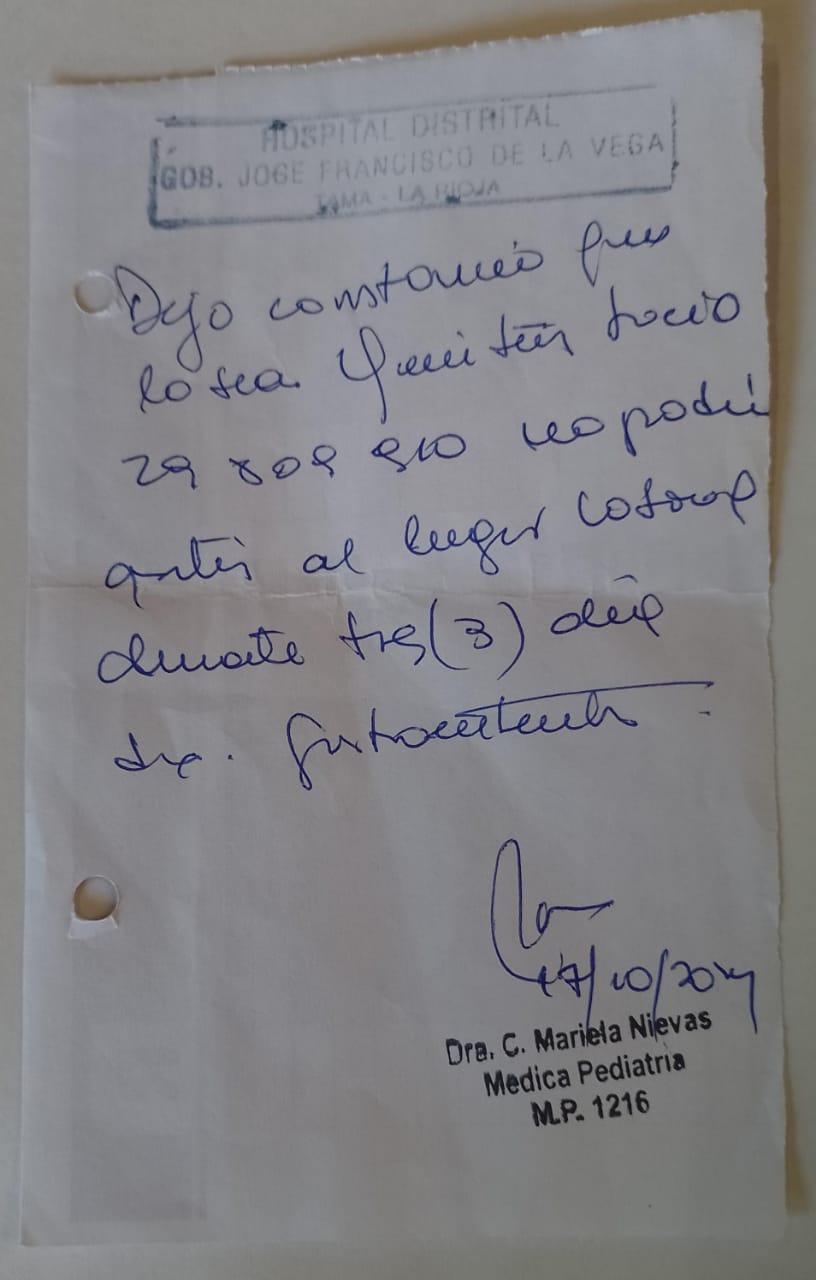 HOSPITAL DISTRITAL
GOB. JOSE FRANCISCO DE LA VEGA
TAMA - LA RIOJA
Dejo constancia que
la Sra. Rocio
29 809 910 no podrá
asistir al lugar laboral
durante tres (3) días
dx. Gastroenteritis.
17/10/2024
Dra. C. Mariela Nievas
Medica Pediatria
M.P. 1216